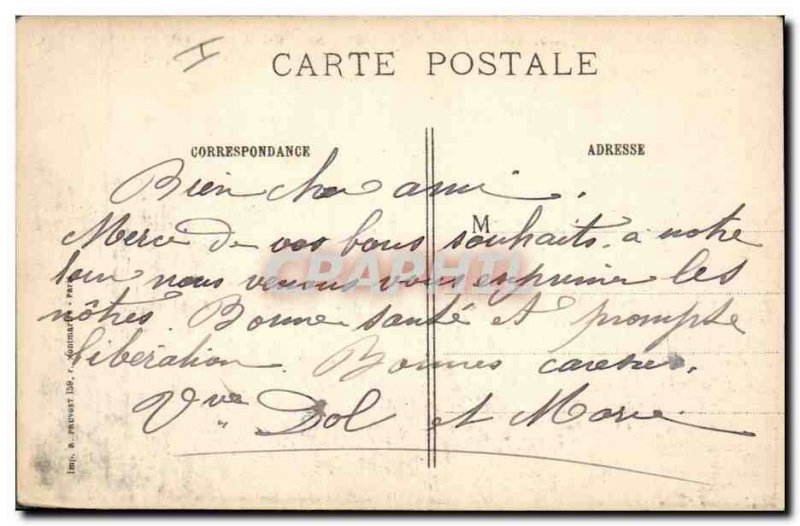 H
CARTE POSTALE
CORRESPONDANCE
ADRESSE
Bien cher ami.
M
Merci de vos bons souhaits. à notre
tour nous venons vous exprimer les
nôtres. Bonne santé et prompte
libération. Bonnes caresses.
Vve Dol et Marie
Imp. A. PRUVOST 159, r. Montmartre - Paris
CPAPHIL